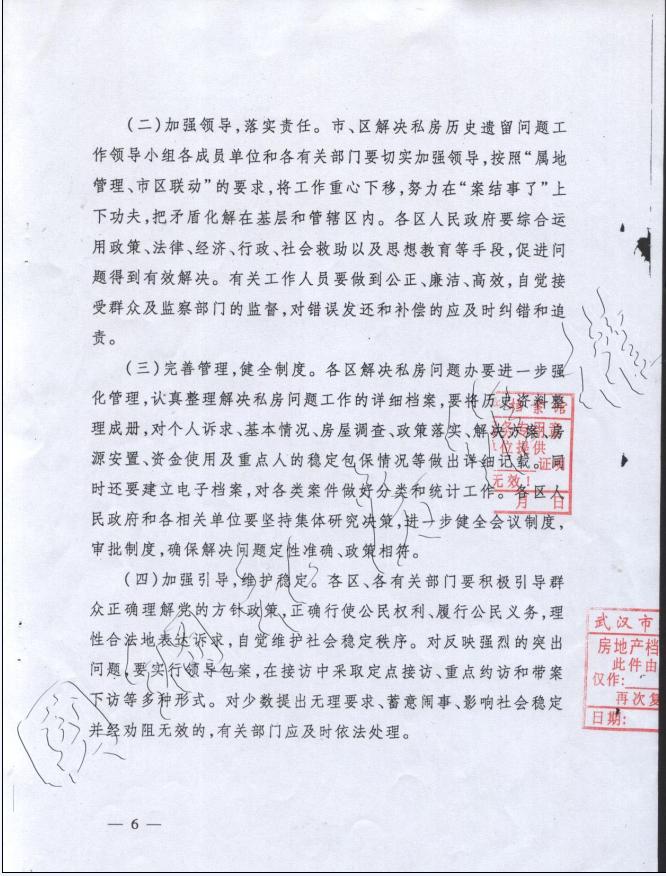 (二)加强领导,落实责任。市、区解决私房历史遗留问题工
作领导小组各成员单位和各有关部门要切实加强领导,按照“属地
管理、市区联动”的要求,将工作重心下移,努力在“案结事了”上
下功夫,把矛盾化解在基层和管辖区内。各区人民政府要综合运
用政策、法律、经济、行政、社会救助以及思想教育等手段,促进问
题得到有效解决。有关工作人员要做到公正、廉洁、高效,自觉接
受群众及监察部门的监督,对错误发还和补偿的应及时纠错和追
责。
(三)完善管理,健全制度。各区解决私房问题办要进一步强
化管理,认真整理解决私房问题工作的详细档案,要将历史资料整
理成册,对个人诉求、基本情况、房屋调查、政策落实、解决方案、房
源安置、资金使用及重点人的稳定包保情况等做出详细记载。同
时还要建立电子档案,对各类案件做好分类和统计工作。各区人
民政府和各相关单位要坚持集体研究决策,进一步健全会议制度,
审批制度,确保解决问题定性准确、政策相符。
(四)加强引导,维护稳定。各区、各有关部门要积极引导群
众正确理解党的方针政策,正确行使公民权利、履行公民义务,理
性合法地表达诉求,自觉维护社会稳定秩序。对反映强烈的突出
问题,要实行领导包案,在接访中采取定点接访、重点约访和带案
下访等多种形式。对少数提出无理要求、蓄意闹事、影响社会稳定
并经劝阻无效的,有关部门应及时依法处理。
— 6 —
档案馆
位提供
证明
无效!
月 日
武汉市
房地产档
此件由
仅作:
再次复
日期: